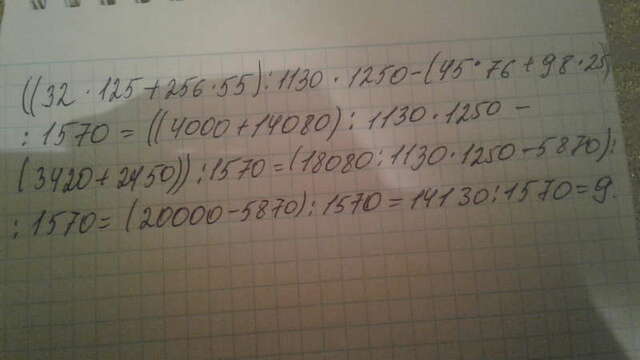 ((32 · 125 + 256 · 55) : 1130 · 1250 - (45 · 76 + 98 · 25)
: 1570 = ((4000 + 14080) : 1130 · 1250 -
(3420 + 2450)) : 1570 = (18080 : 1130 · 1250 - 5870) :
: 1570 = (20000 - 5870) : 1570 = 14130 : 1570 = 9.